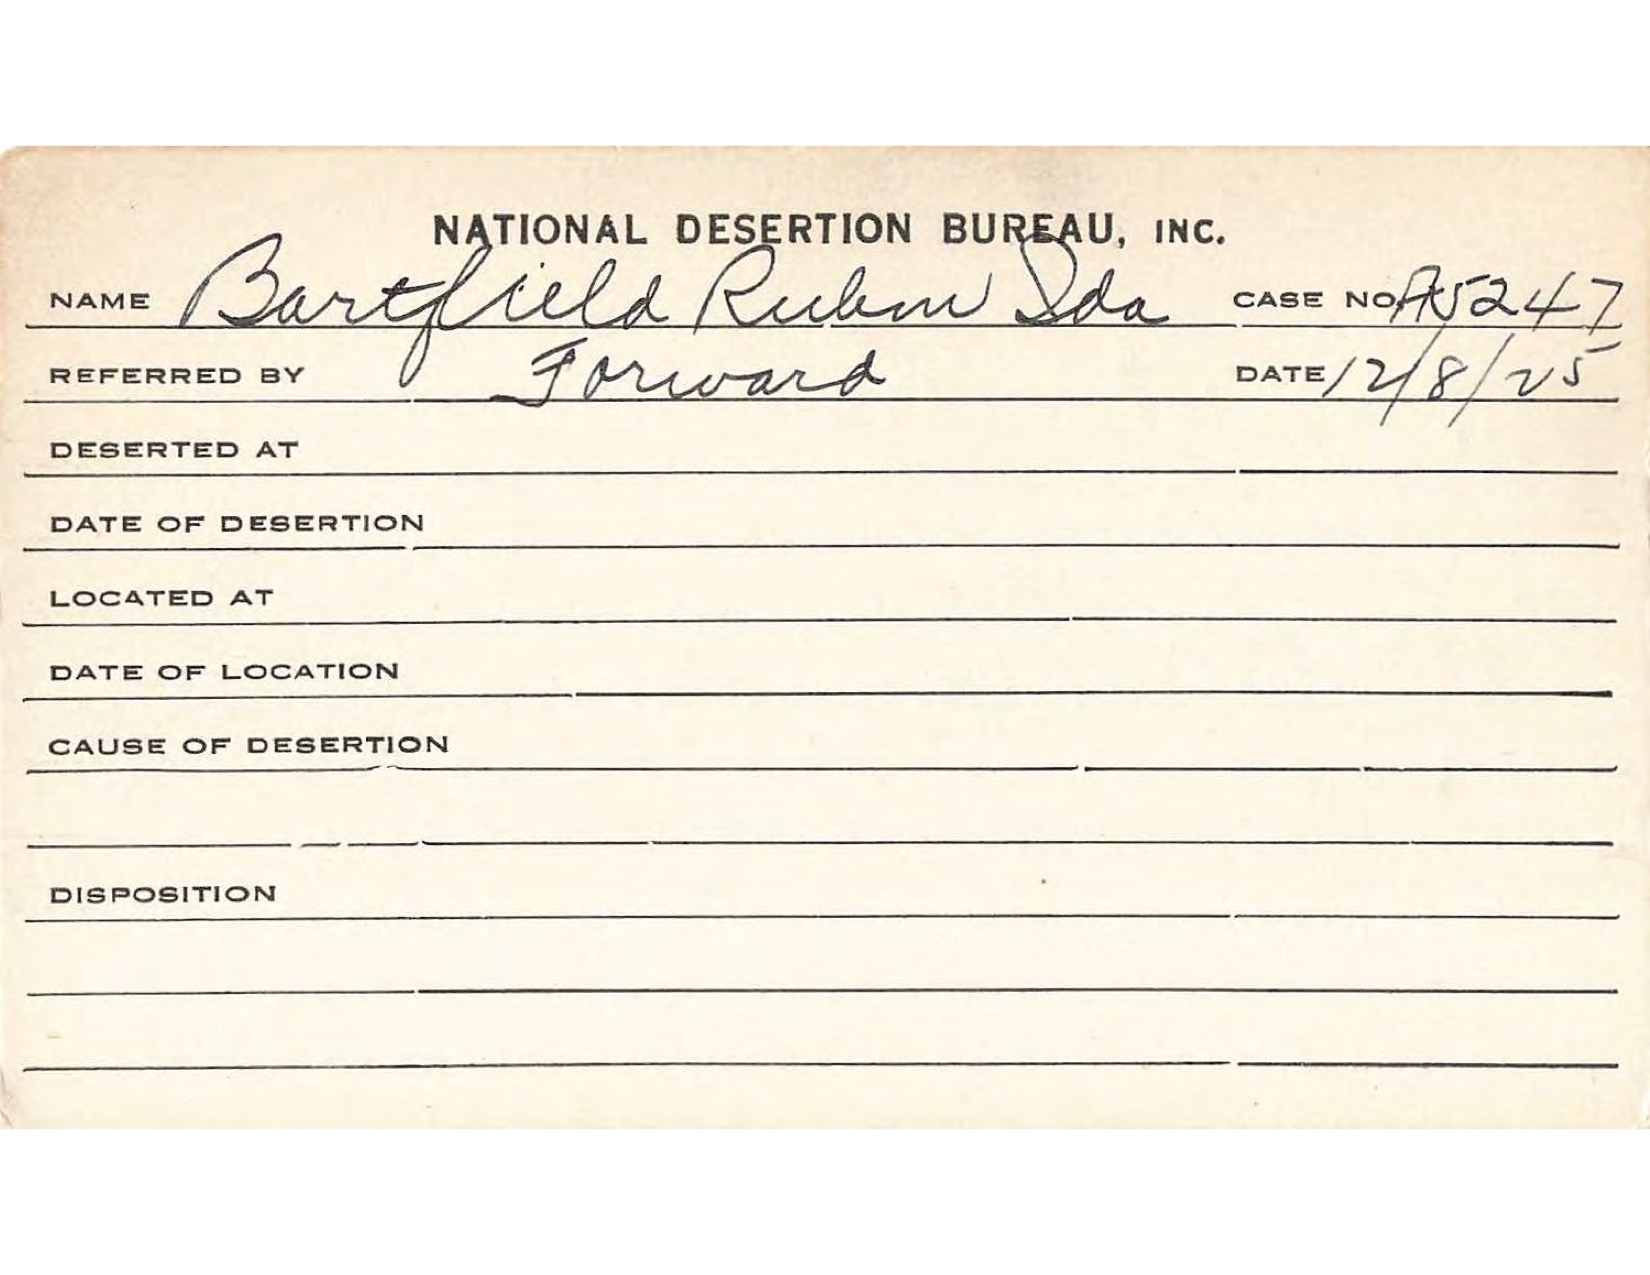 NATIONAL DESERTION BUREAU, INC.
NAME Bartfield Ruben Ida CASE NO. A5247
REFERRED BY Forward DATE 12/8/25
DESERTED AT
DATE OF DESERTION
LOCATED AT
DATE OF LOCATION
CAUSE OF DESERTION
DISPOSITION